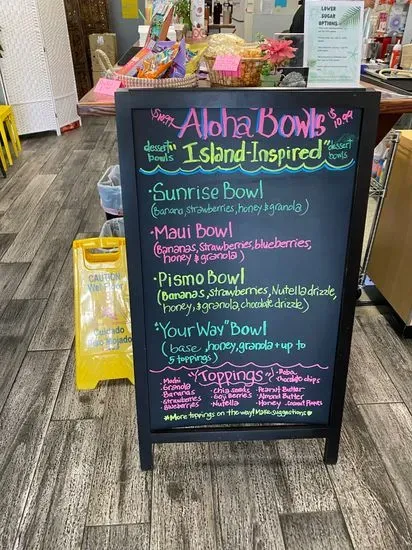 LOWER
SUGAR OPTIONS
$10.99
Aloha Bowls
$10.99
dessert
bowls
"Island-Inspired"
dessert
bowls
·Sunrise Bowl
(Banana, strawberries, honey & granola)
·Maui Bowl
(Bananas, Strawberries, blueberries,
honey & granola)
·Pismo Bowl
(Bananas, strawberries, Nutella drizzle,
honey, & granola, chocolate drizzle)
·"Your Way" Bowl
(base, honey, granola + up to
5 toppings)
"Toppings"
·Mochi
·Granola
·Bananas
·Strawberries
·Blueberries
·Chia seeds
·Goji Berries
·Nutella
·Peanut Butter
·Almond Butter
·Honey
·Boba
·chocolate chips
·Coconut Flakes
*More toppings on the way! Make suggestions ♡
CAUTION
Wet Floor
Cuidado
Piso Mojado